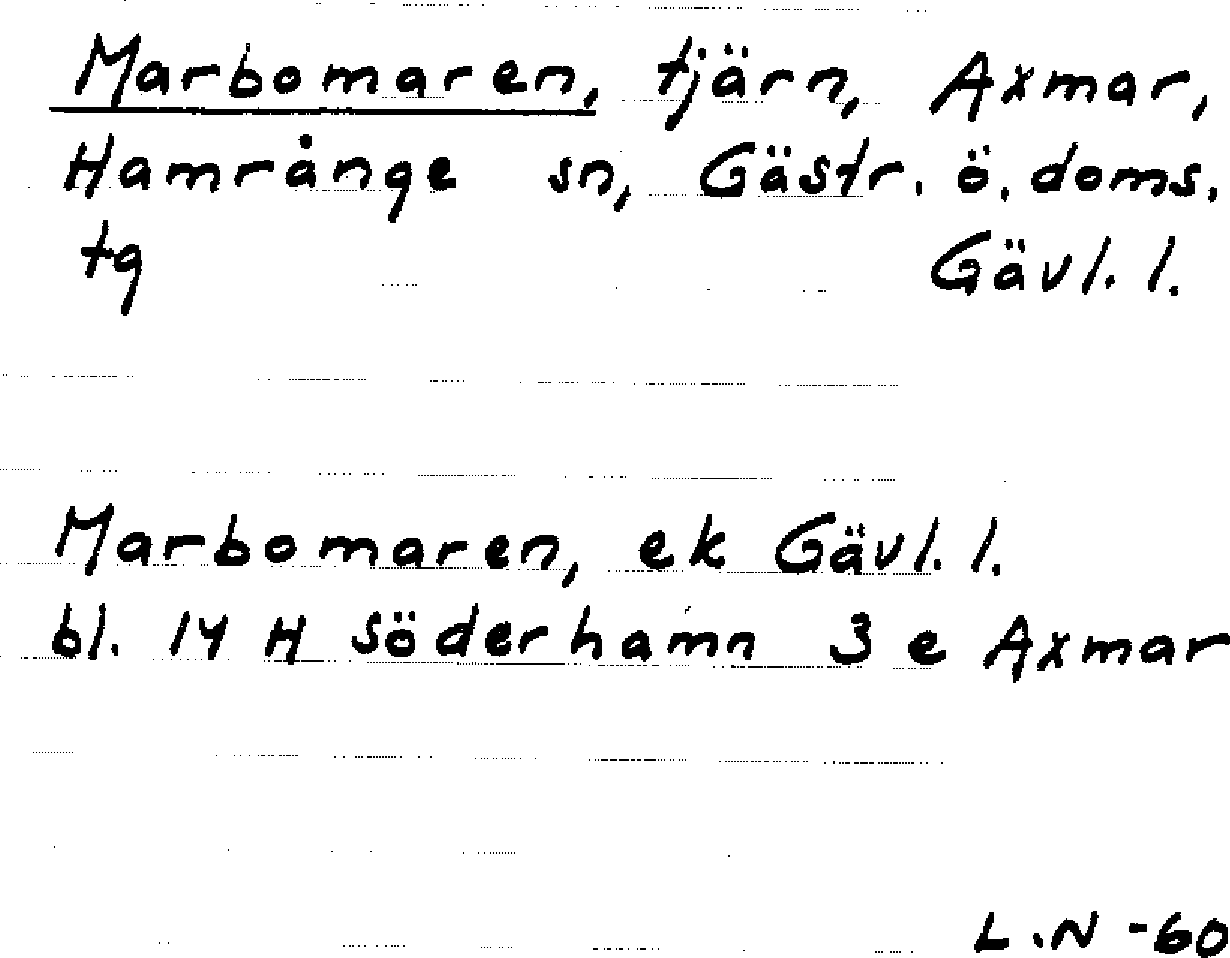 Marbomaren, tjärn, Axmar,
Hamrånge sn, Gästr. ö. doms.
tg Gävl. l.
Marbomaren, ek Gävl. l.
bl. 14 H Söderhamn 3 e Axmar
L.N -60